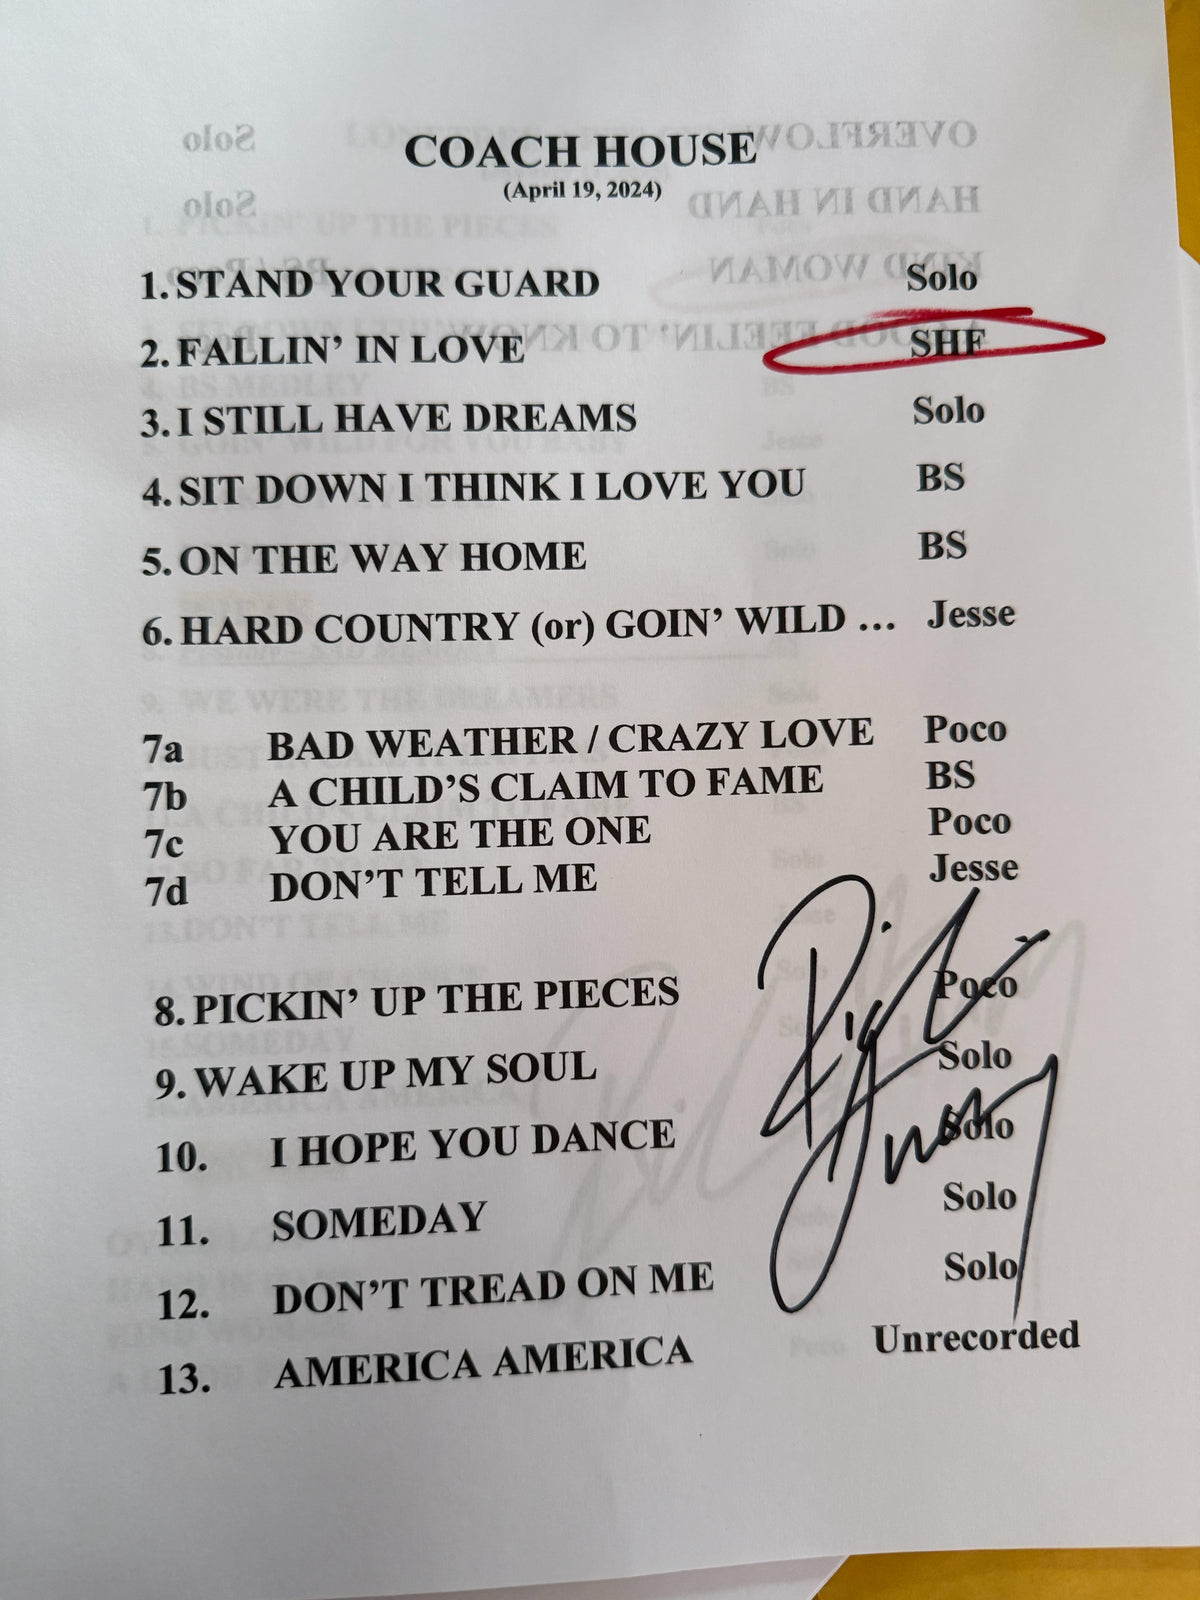 COACH HOUSE
(April 19, 2024)
1. STAND YOUR GUARD Solo
2. FALLIN’ IN LOVE SHF
3. I STILL HAVE DREAMS Solo
4. SIT DOWN I THINK I LOVE YOU BS
5. ON THE WAY HOME BS
6. HARD COUNTRY (or) GOIN’ WILD ... Jesse
7a BAD WEATHER / CRAZY LOVE Poco
7b A CHILD’S CLAIM TO FAME BS
7c YOU ARE THE ONE Poco
7d DON’T TELL ME Jesse
8. PICKIN’ UP THE PIECES Poco
9. WAKE UP MY SOUL Solo
10. I HOPE YOU DANCE Solo
11. SOMEDAY Solo
12. DON’T TREAD ON ME Solo
13. AMERICA AMERICA Unrecorded